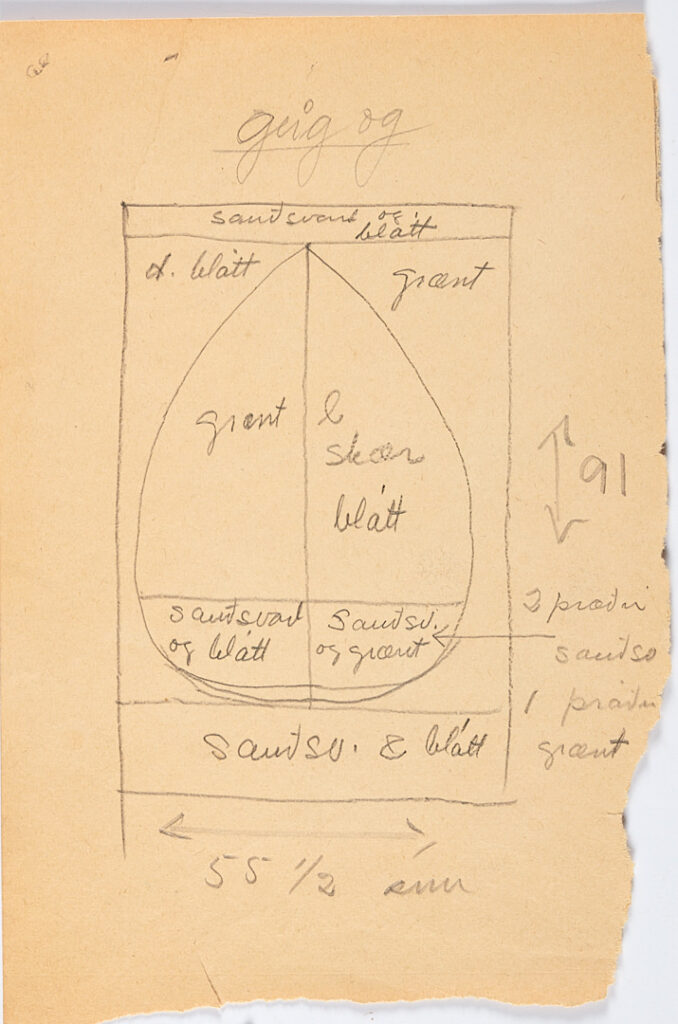 og
sauðsvart og
blátt
d. blátt
grænt
grænt
&
skær
blátt
91
sauðsvart
og blátt
Sauðsv.
og grænt
2 þræðir
sauðsv
1 þráður
grænt
Sauðsv. & blátt
55 1/2